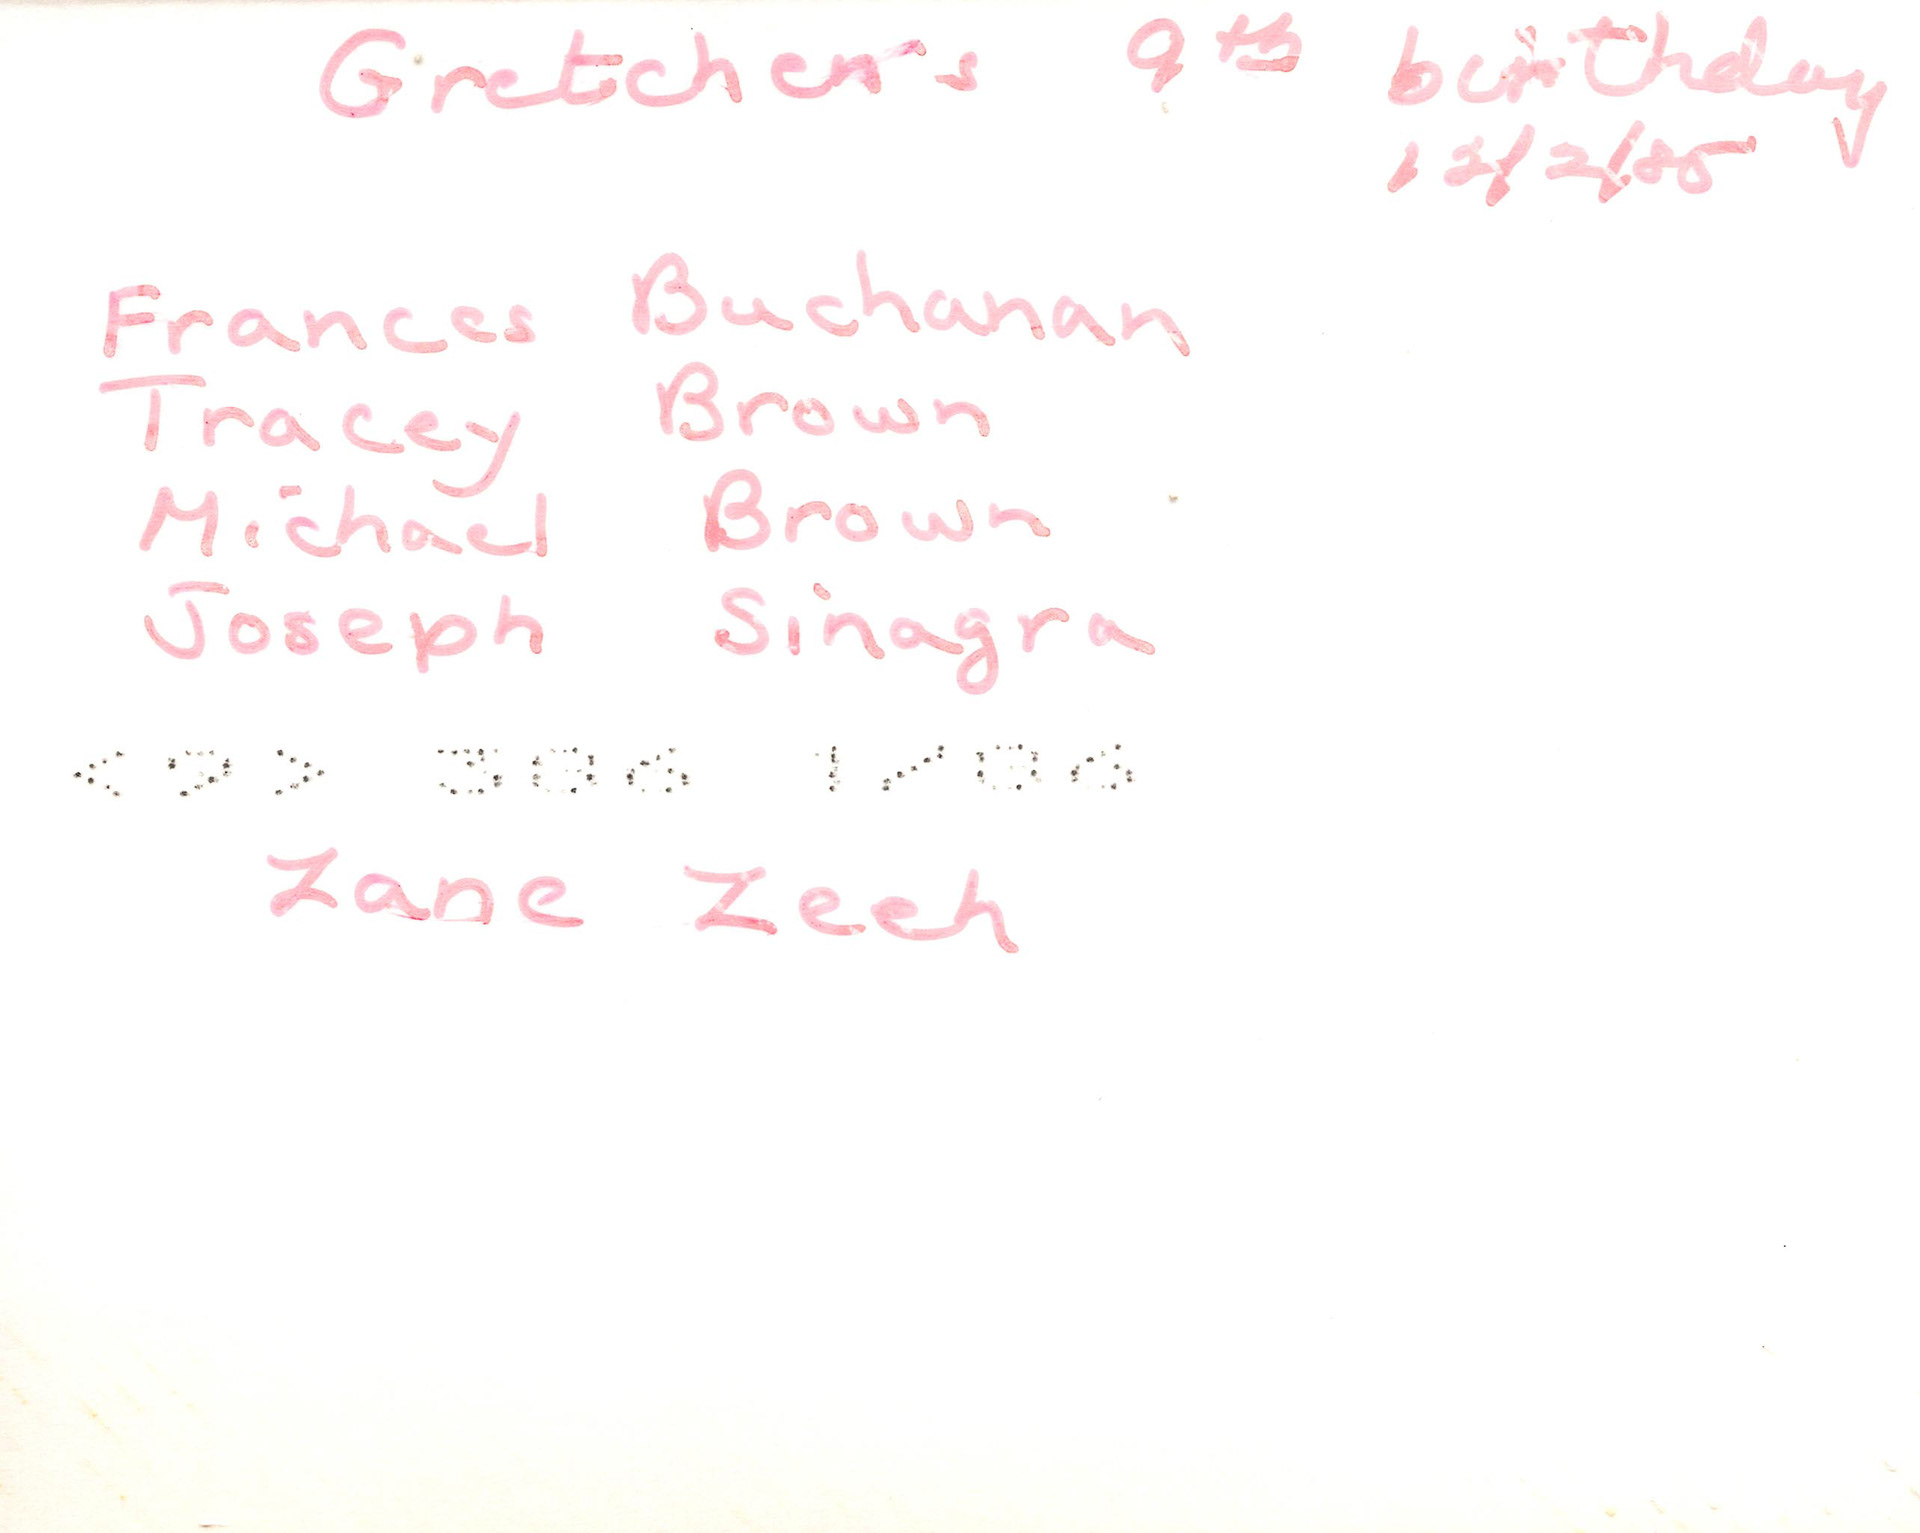 Gretchen's 9th birthday
12/2/85
Frances Buchanan
Tracey Brown
Michael Brown
Joseph Sinagra
<9> 386 1/86
Zane Zeeh